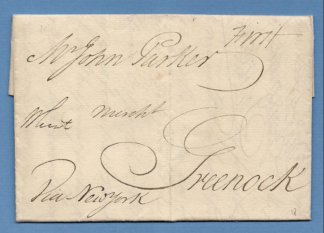 First
Mr John Parker
Mercht
Greenock
Via New York